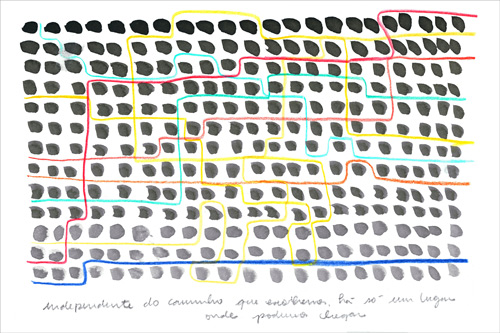 independente do caminho que escolhemos, há só um lugar
onde podemos chegar